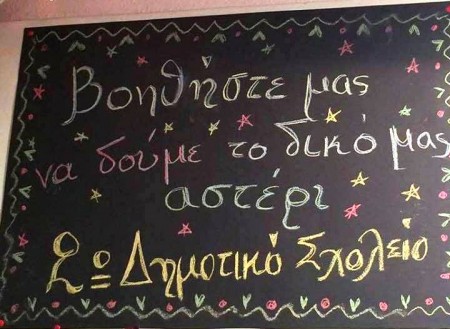 Βοηθήστε μας
να δούμε το δικό μας
αστέρι
2ο Δημοτικό Σχολείο